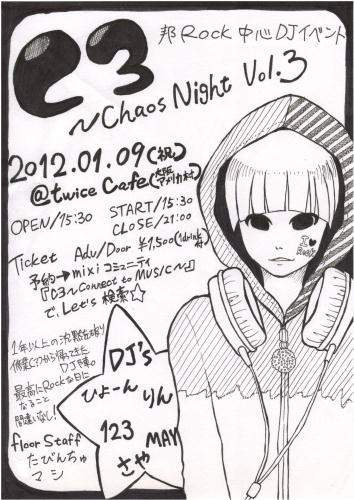 C3
邦Rock 中心 DJイベント
~Chaos Night Vol.3
2012.01.09(祝)
@twice Cafe(大阪アメリカ村)
OPEN/15:30
START/15:30
CLOSE/21:00
Ticket Adv/Door ¥1,500(1drink付)
予約→mixiコミュニティ
『C3~Connect to MUSIC~』
で、Let's 検索☆
1年以上の沈黙を破り
DJ陣。
最高にRockな日に
なること
間違いなし!
floor Staff
たびんちゅ
マシ
DJ's
ひょーん りん
123 MAY
さや
I ♥
Rock